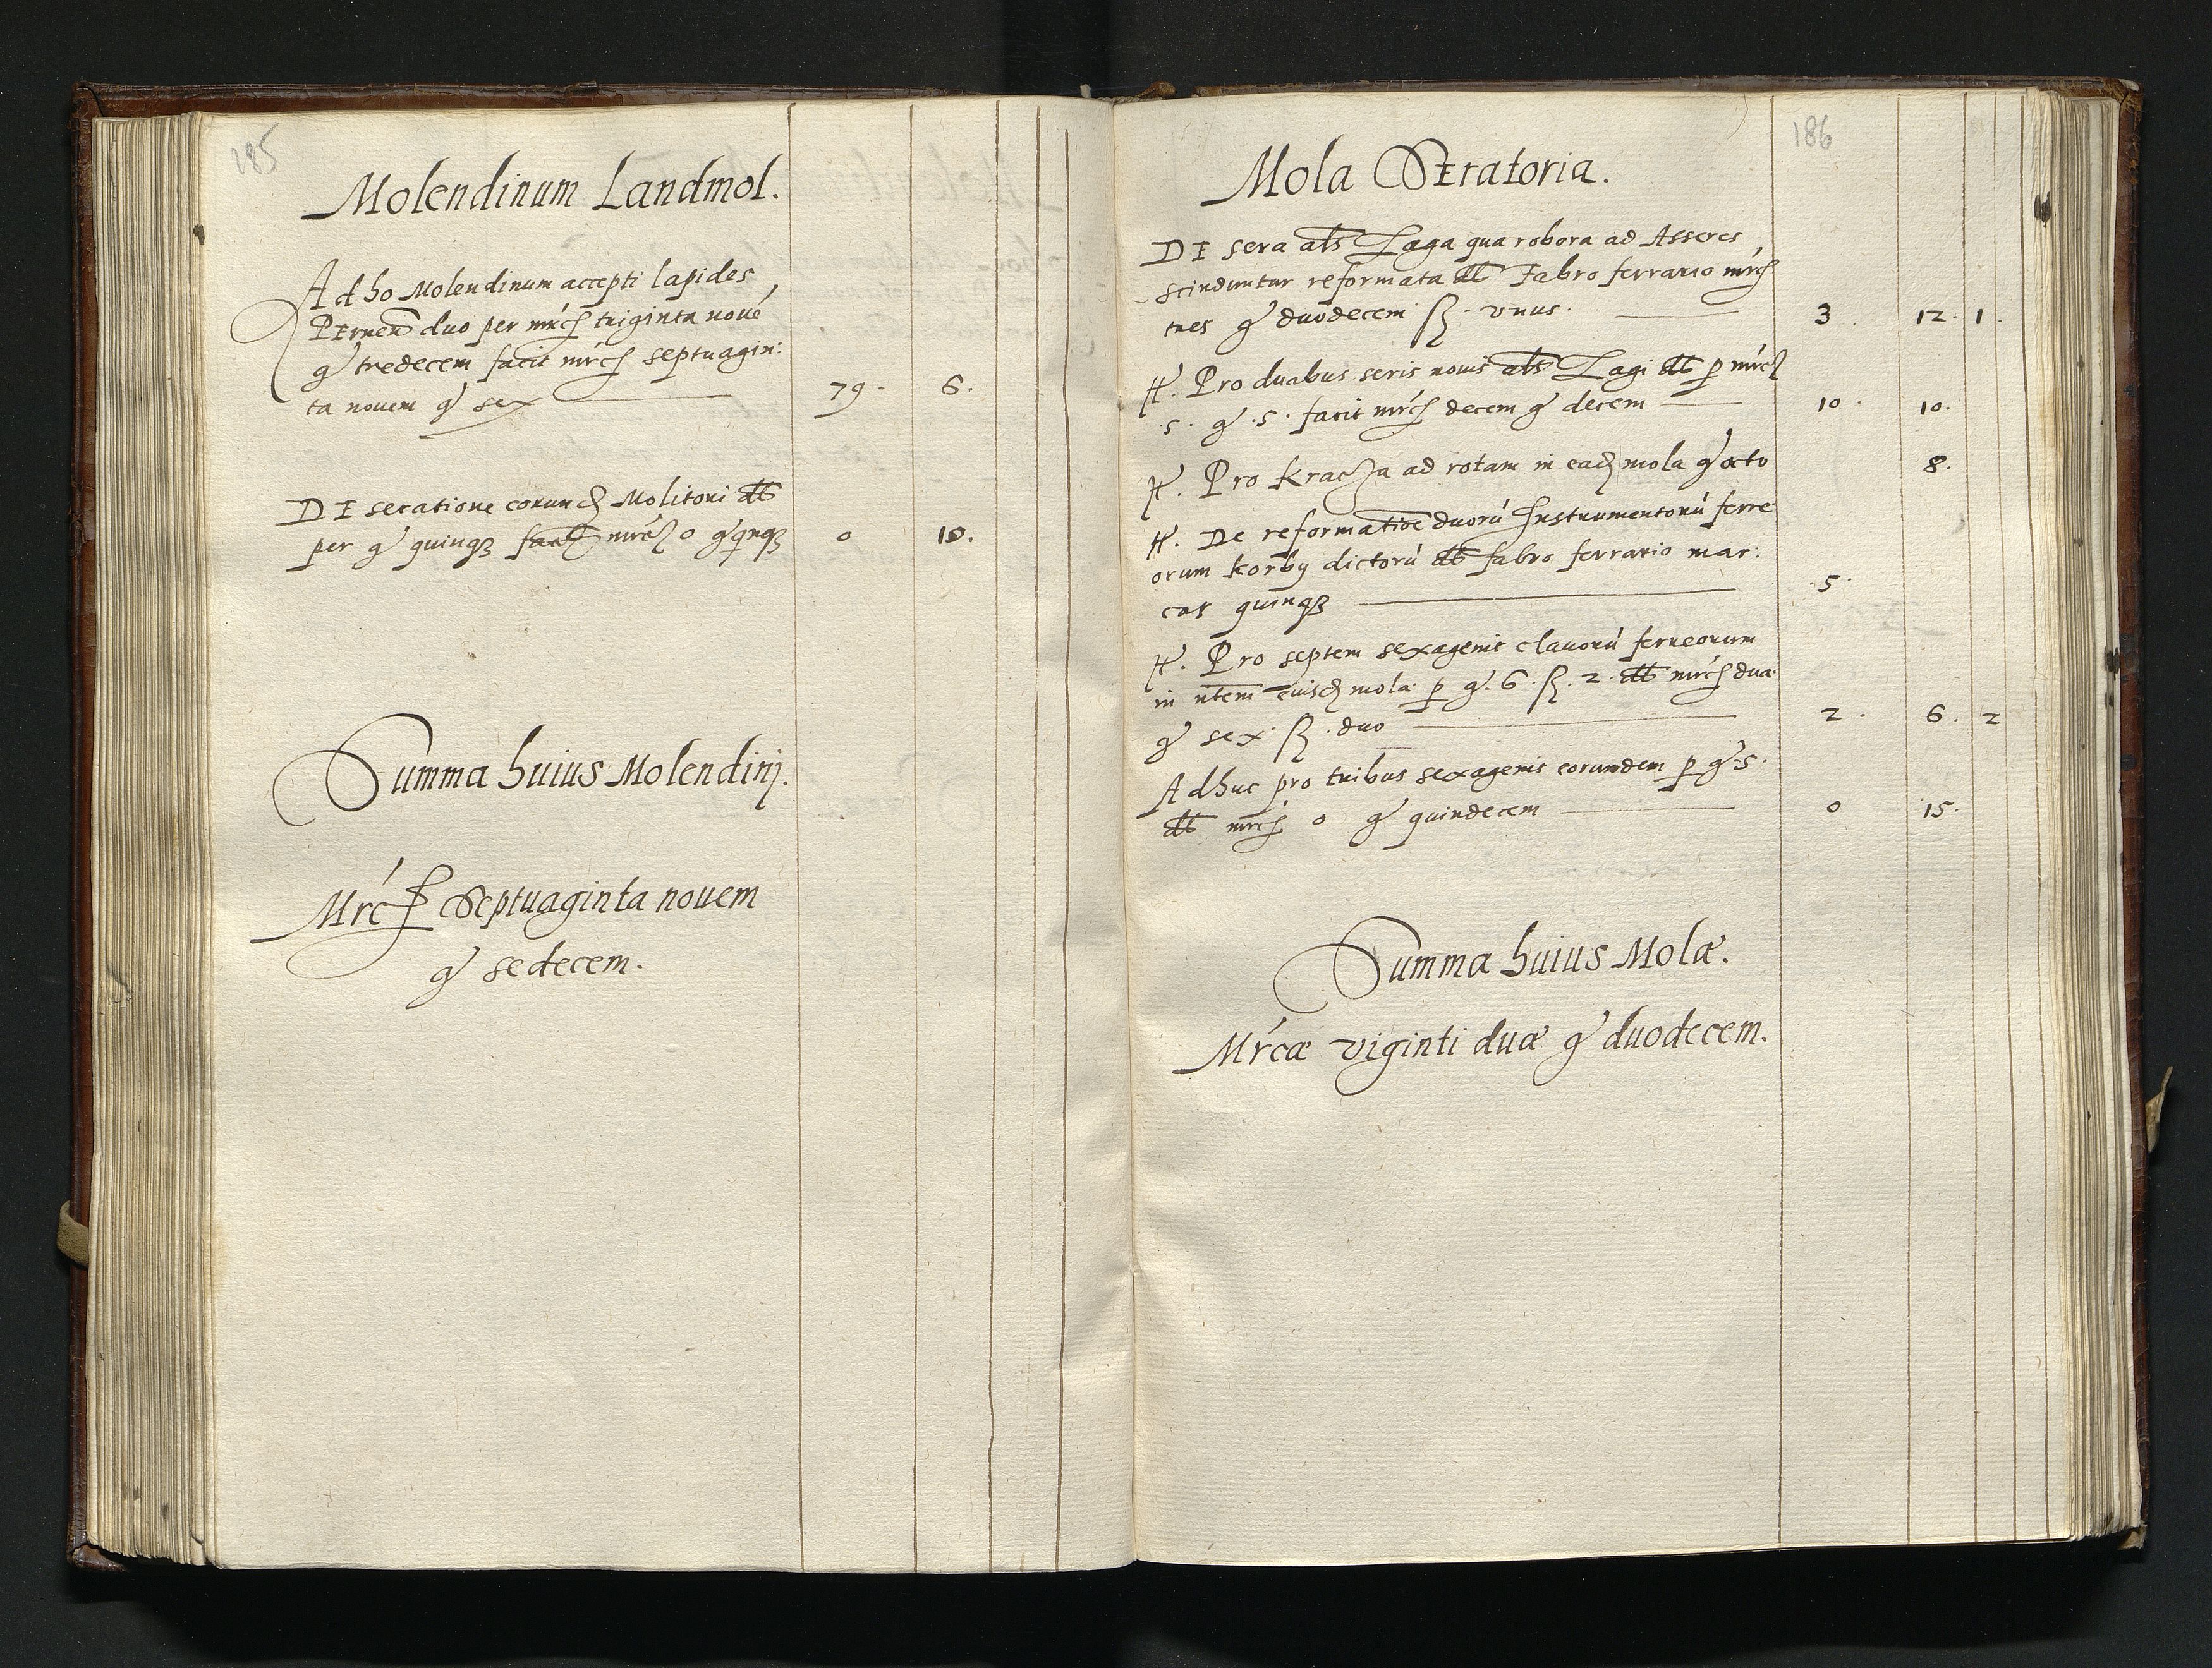 185
Molendinum Landmol.
Ad ho Molendinum accepti lapides
duo per mrcs triginta noué
gͦ tredecem facit mrcs septuagin:
ta nouem gͦ sex 79. 6.
DE secatione eorund Molitori dt
per gͦ quinqꝫ facit mrcs 0 gͦ 0 10.
Summa huius Molendinj.
Mrcs Septuaginta nouem
gͦ sedecem.
186
Mola SEratoria.
DE sera als Laga qua robora ad Asseres
scinduntur reformata dt Fabro ferrario mrcs
tres gͦ duodecem ſꝫ. vnus. 3. 12. 1.
It. Pro duabus seris nouis als Lagi dt p mrcs
5. gͦ .5. facit mrcs decem gͦ decem 10. 10.
It. Pro kracza ad rotam in ead mola gͦ octo 8.
It. De reformatioe duorú Instrumentorú ferre
orum korby dictorú dt fabro ferrario mar:
cas quinqꝫ .5.
It. Pro septem sexagenis clauorú ferreorum
in eiusd mola p gͦ. 6. ſꝫ. 2. dt mrcs dua.
gͦ sex. ſꝫ. duo 2. 6. 2
Adhuc pro tribus sexagenis eorumdem p gͦ .5.
dt mrcs 0 gͦ quindecem 0 15.
Summa huius Molæ.
Mrcæ viginti duæ gͦ duodecem.